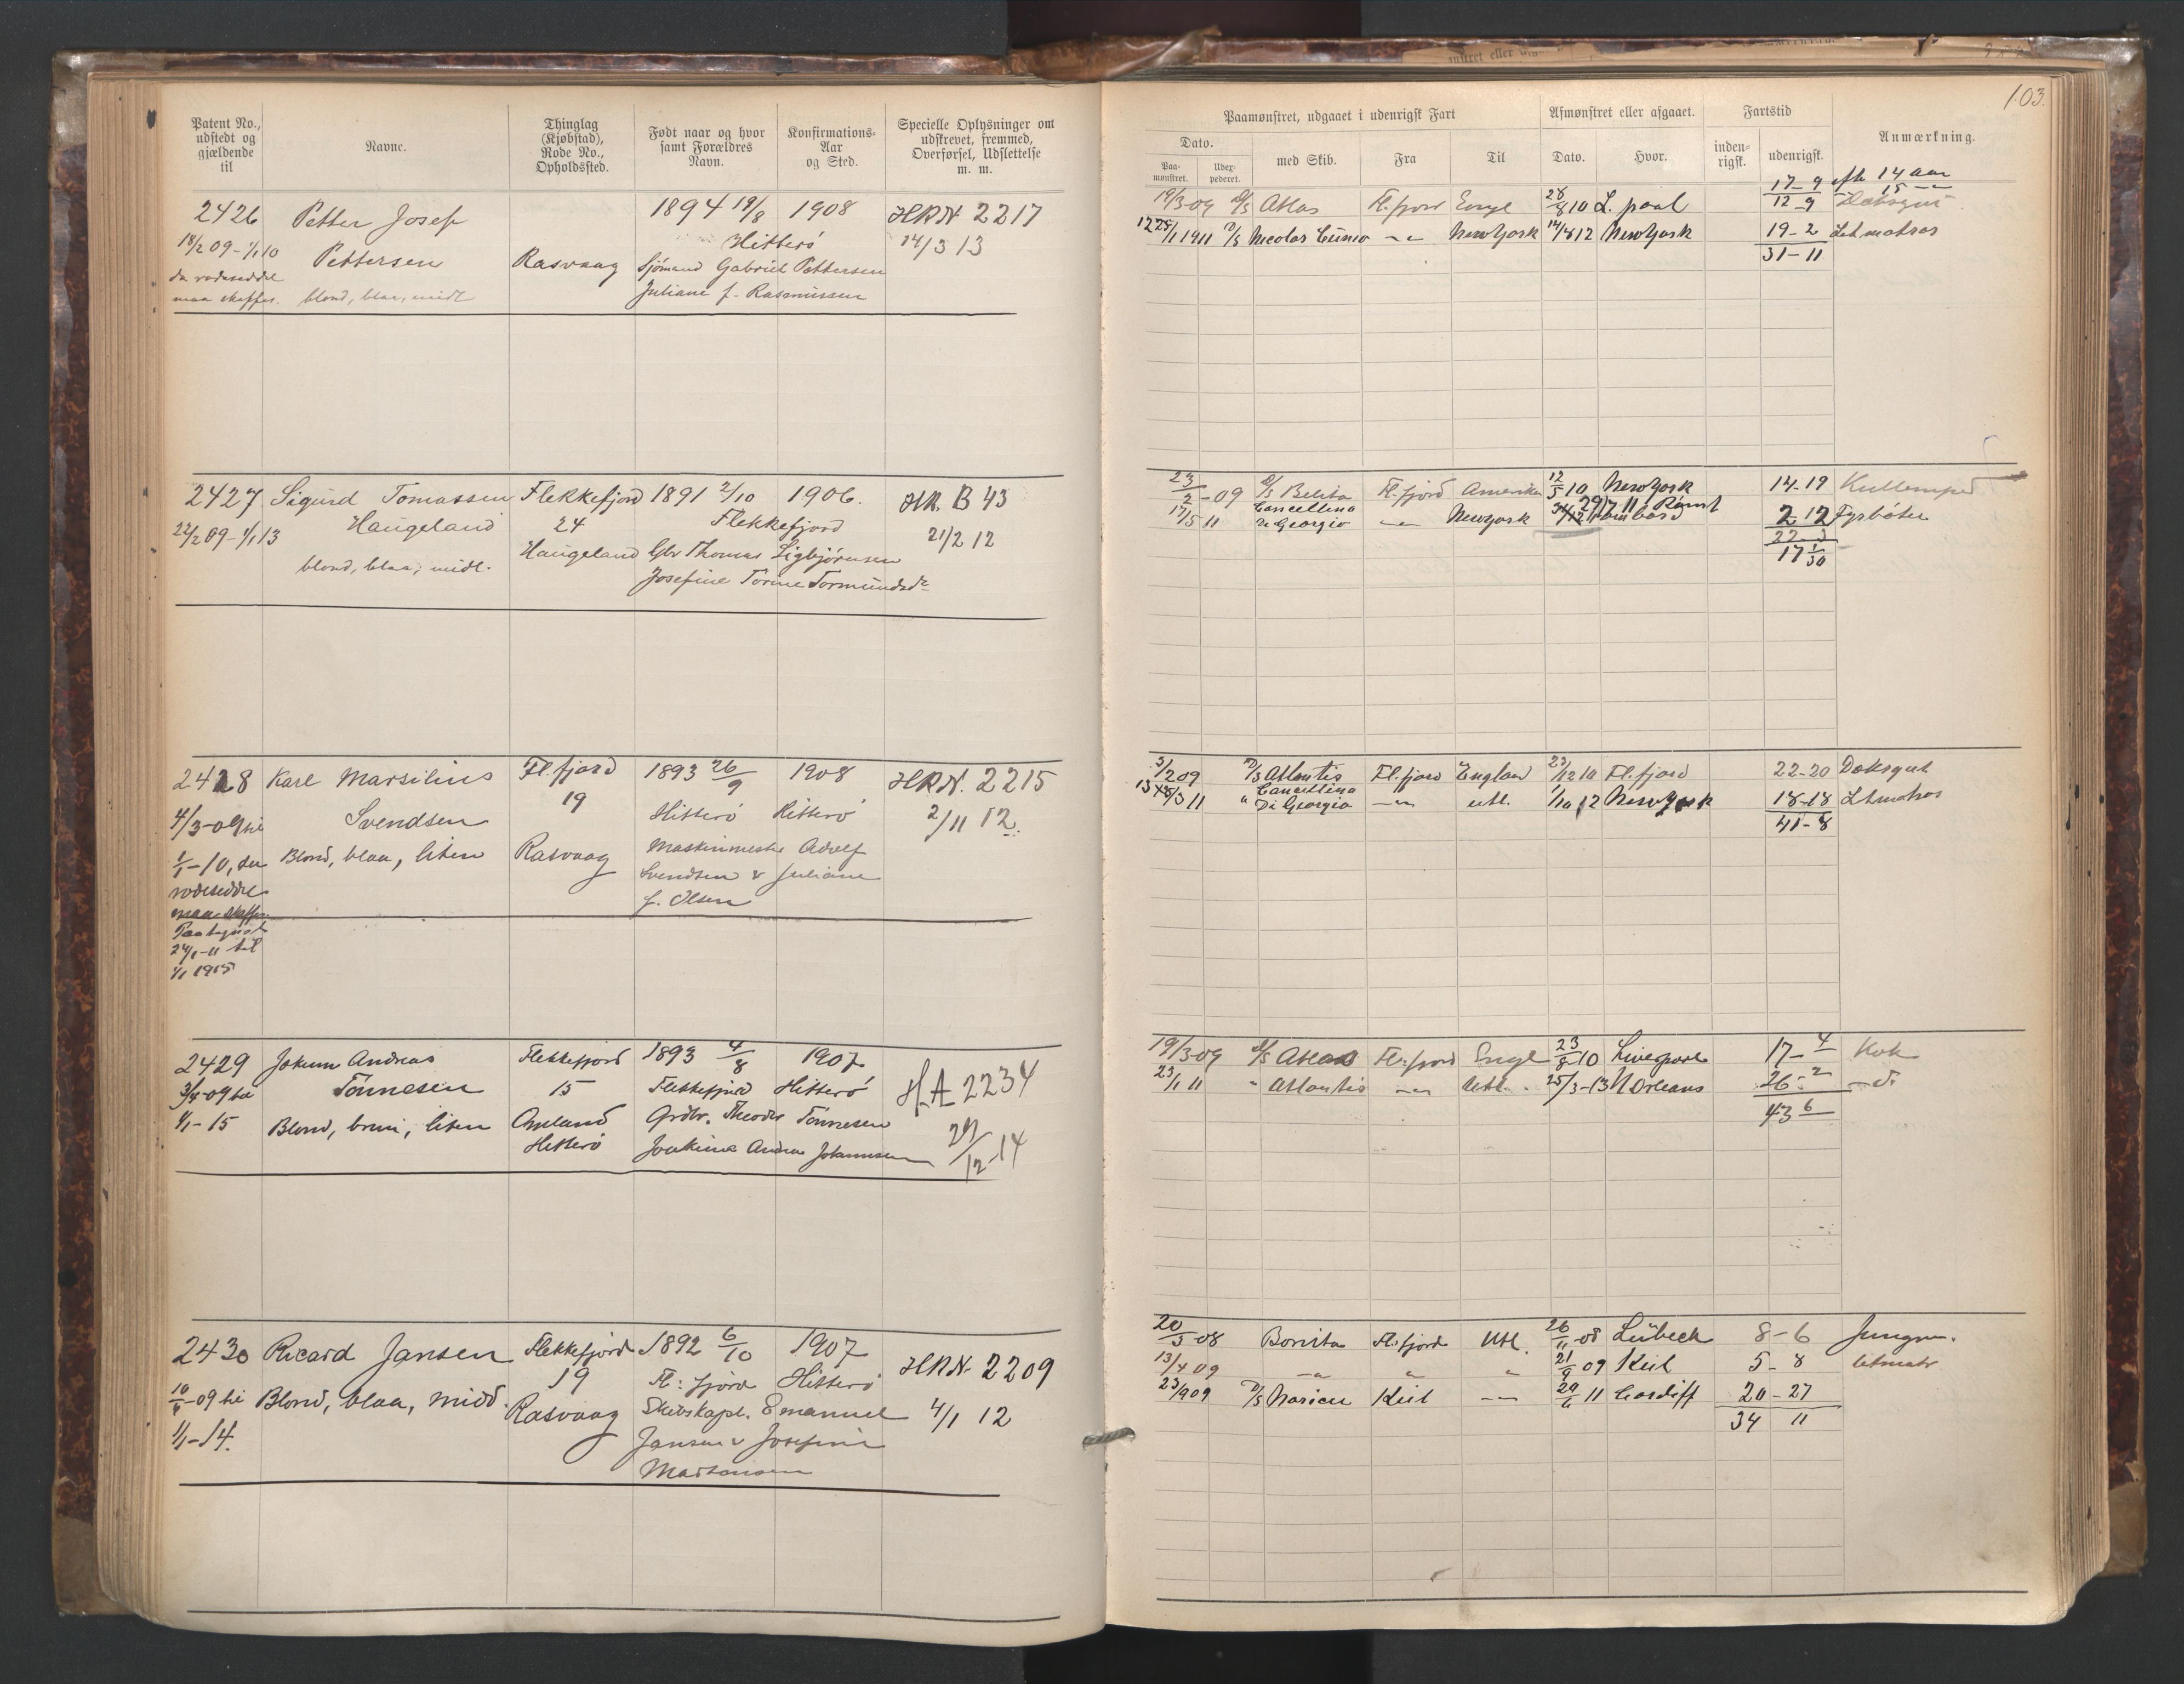 Patent No., udstedt og gjældende til
Navne.
Thinglag (Kjøbstad), Rode No., Opholdssted.
Født naar og hvor samt Forældres Navn.
Konfirmations-Aar og Sted.
Specielle Oplysninger om udskrevet, fremmed, Overførsel, Udslettelse m. m.
2426 Petter Josef 1894 19/8 1908 HRN 2217
18/2 09 - 1/1 10 Pettersen Rasvaag Hitterö 14/3 13
da rodeseddel Sjömand Gabriel Pettersen
maa skaffes. blond, blaa, midl Juliane f. Rasmussen
2427 Sigurd Tomassen Flekkefjord 1891 2/10 1906. HR. B 43
22/2 09 - 1/1 13 Haugeland 24 Flekkefjord 21/2 12
blond, blaa, midl. Haugeland Gbr Thomas Sigbjörnsen
Josefine Torine Tormundsdr
2428 Karl Marsilius Fl.fjord 1893 26/9 1908 HRN. 2215
4/3-09 til Svendsen 19 Hitterö Hitterö 2/11 12.
1/1-10, da Blond, blaa, liten Rasvaag Maskinmester Adolf
rodeseddel Svendsen & Juliane
maa skaffes f. Olsen
Paategnet
24/1-11 til
1/1 1915
2429 Jokum Andreas Flekkefjord 1893 4/8 1907 HA 2234
3/4-09 til Tönnesen 15 Flekkefjord Hitterö
1/1-15 Blond, brun, liten Aneland Grdbr. Theodor Tönnesen 29/12-14
Hitterö Joakime Andrea Johannesen
2430 Ricard Jansen Flekkefjord 1892 6/10 1907 HRN 2209
10/4-09 til Blond, blaa, midd. 19 Fl:fjord Hitterö
1/1-14. Rasvaag Skibskapt. Emanuel 4/1 12
Jansen & Josefine
Martensen
103.
Paamønstret, udgaaet i udenrigsk Fart
Afmønstret eller afgaaet.
Fartstid
Anmærkning.
Dato.
Paa-mønstret.
Udex-pederet.
med Skib.
Fra
Til
Dato.
Hvor.
inden-rigsk.
udenrigsk.
17-9 eft 14 aar
19/3-09 D/S Atlas Fl.fjord Engl 28/8 10 L.pool 12-9 15 -"-
25/1 1911 D/S Nicolas Cuneo -"- New York 14/8 12 New York 19-2 Letmatros
31-11
23/2-09 D/S Belita Fl.fjord Amerika 12/5 10 New York 14-19 Kullemper
17/5 11 Cancellina Di Georgio -"- New York 29/7 11 Römt 2 12 Fyrböter
17 1/30
3/2 09 D/S Atlantis Fl.fjord England 23/12 10 Fl.fjord 22-20 Doksgut
13/3 11 " Cancellina Di Georgio -"- utl. 1/10 12 New York 18-18 Letmatros
41-8
19/3-09 D/S Atlas Fl:fjord Engl 23/8 10 Liverpool 17-4 Kok
23/1 11 " Atlantis -"- Utl. 25/3-13 N Orleans 26-2 -d-
43 6
20/3-08 Bonita Fl:fjord Utl. 26/11-08 Lübeck 8-6 Jungm.
13/4 09 -"- " " 21/9 09 Kiel 5-8 letmatr
23/9 09 D/S Marien Kiel -"- 29/6 11 Cardiff 20-27
34 11